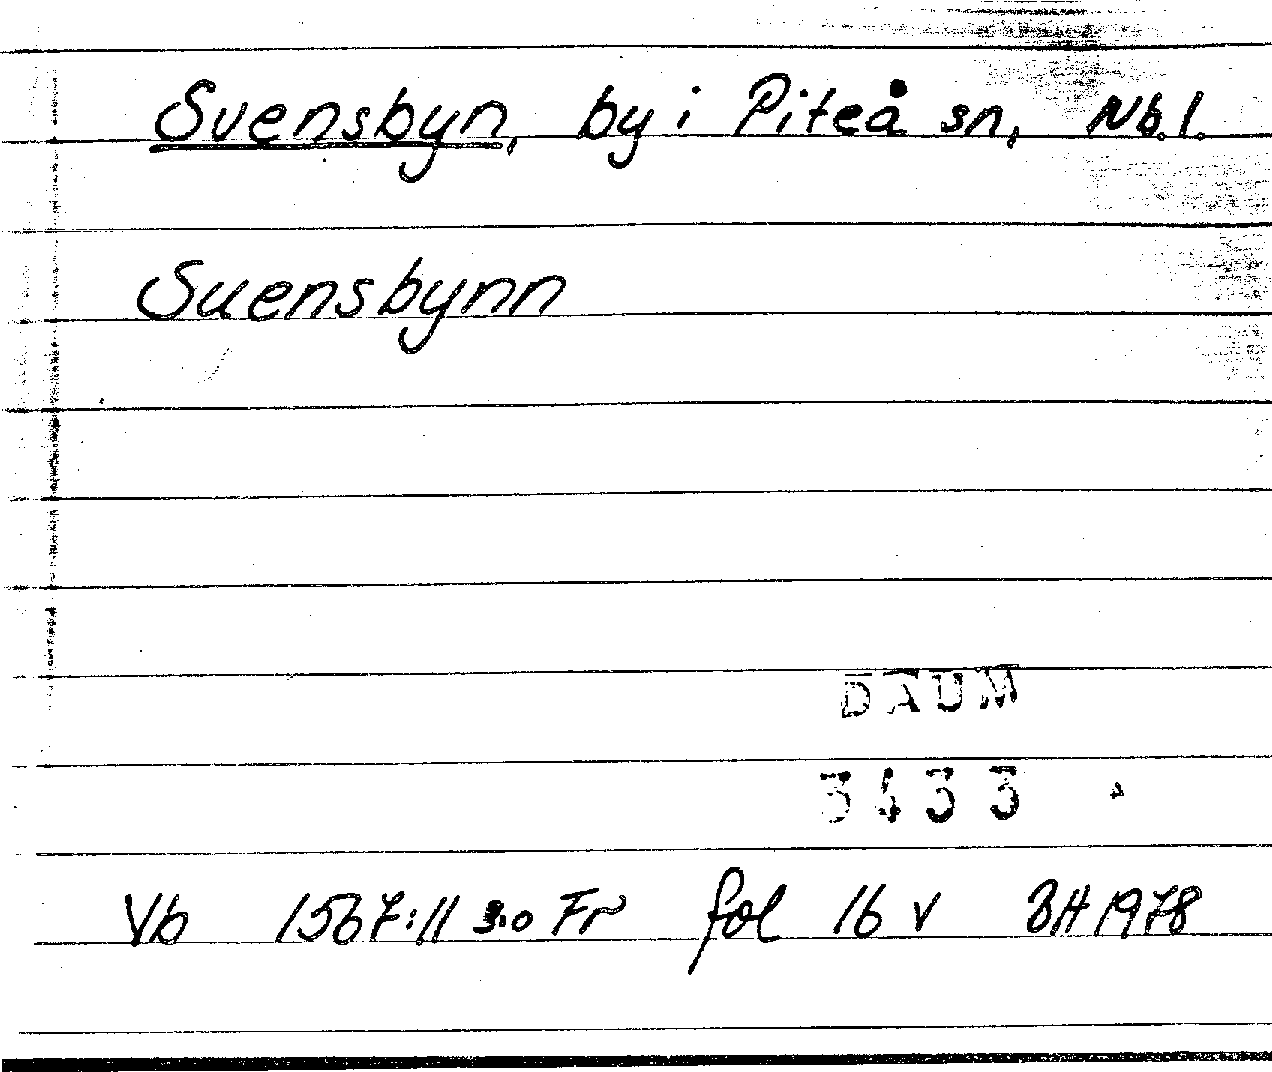 Svensbyn, by i Piteå sn, Nb.l.
Suensbynn
DAUM
3433
Vb 1567:11 s.o Fr fol 16 v BH 1978